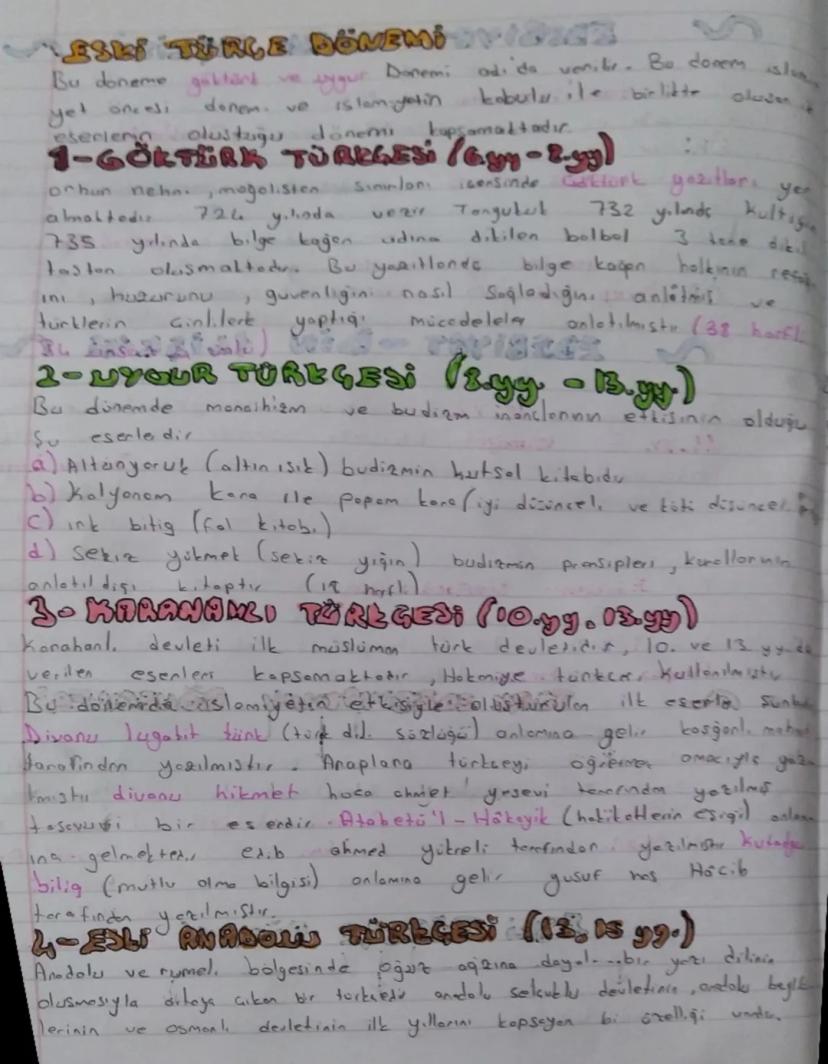 ESKİ TÜRÇE DÖNEMİ
Bu doneme göktürk ve uygur Donemi adı da verilir. Bu donem islam
yet öncesi donem. ve islamiyetin kabulu ile birlikte olusan
eserlerin olustuğu dönemi kapsamaktadır.
1-GÖKTÜRK TÜRKÇESİ (6.yy - 8.yy)
orhun nehri, moğolistan sınırları icersinde Göktürk yazıtları yer
almaktadır 724 yılında vezir Tonyukuk 732 yılında Kultigin
735 yılında bilge kağan adına dikilen balbal 3 tane dikil
tastan olusmaktadır. Bu yazıtlarda bilge kağan halkının
ını, huzurunu, guvenliğini nasıl sağladığını anlatmıs ve
türklerin cinlilerle yaptığı mücadeleler anlatılmıstır (38 harfli
2-UYGUR TÜRKÇESİ (8.yy. - 13.yy.)
Bu dönemde manaihizm ve budizm inançlarının etkisinin olduğu
su eserledir
a) Altunyaruk (altın ısık) budizmin kutsal kitabıdır
b) Kalyanam kara ile papam kara (iyi düsünceli ve kötü düsünceli
c) ırk bitig (fal kitabı)
d) sekiz yükmek (sekiz yığın) budizmin prensipleri, kurallarının
anlatıldığı kitaptır (18 harfli)
3- KARAHANLI TÜRKÇESİ (10.yy. 13.yy)
Karahanlı devleti ilk müslüman türk devletidir, 10. ve 13 yy da
verilen eserleri kapsamaktadır, Hakaniye türkcesi kullanılmıstır
Bu dönemde islamiyetin etkisiyle olusturulan ilk eserler
Divanu lugatit türk (türk dili sözlüğü) anlamına gelir kasgarlı mahmut
tarafından yazılmıstır. Araplara türkceyi öğretmek amacıyla yazı
lmıstır divanu hikmet hoca ahmet yesevi tarafından yazılmıs
tasavvufi bir eserdir. Atabetü'l-Hakayık (hakikatlerin esiği) anlam
ına gelmektedir edib ahmed yükneli tarafından yazılmıstır Kutadgu
bilig (mutlu olma bilgisi) anlamına gelir yusuf has Hacib
tarafından yazılmıstır.
4-ESKİ ANADOLU TÜRKÇESİ (13. 15 yy.)
Anadolu ve rumeli bölgesinde oğuz ağzına dayalı bir yazı dilinin
olusmasıyla ortaya cıkan bir türkcedir anadolu selcuklu devletinin, anadolu beylik
lerinin ve osmanlı devletinin ilk yıllarını kapsayan bi özelliği vardır.